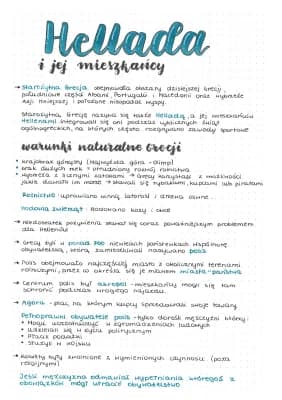 Hellada
i jej mieszkańcy
→ Starożytna Grecja obejmowała obszary dzisiejszej Grecji,
południowe części Albanii, Portugalii i Macedonii oraz wybrzeże
Azji Mniejszej i położone nieopodal wyspy.
Starożytną Grecję nazywa się także Helladą, a jej mieszkańców
Hellenami. Integrowali się oni podczas wybranych świąt
ogólnogreckich, na których często rozgrywano zawody sportowe
warunki naturalne Grecji
• krajobraz górzysty (najwyższa góra - Olimp)
• brak dużych rzek → utrudniony rozwój rolnictwa
• wybrzeża z licznymi zatokami → Grecy korzystali z możliwości
jakie dawało im morze → stawali się rybakami, kupcami lub piratami
Rolnictwo: uprawiano winną latorośl i drzewa oliwne.
Hodowla zwierząt: hodowano kozy i owce
→ Niedostatek pożywienia stawał się coraz poważniejszym problemem
dla Hellenów
→ Grecy żyli w ponad 700 niewielkich państewkach
obywatelską, którą zamieszkiwali nazywano polis
→ Polis obejmowało najczęściej miasto z okolicznymi terenami
rolniczymi, przez co określa się je mianem miasta-państwa
→ Centrum polis był akropol - mieszkańcy mogli się tam
schronić podczas wrogiego najazdu.
→ Agora - plac, na którym kupcy sprzedawali swoje towary
Pełnoprawni obywatele polis - tylko dorośli mężczyźni którzy:
• Mogli uczestniczyć w zgromadzeniach ludowych
• udzielali się w życiu politycznym
• Płacili podatki
• Służyli w wojsku
→ Kobiety były zwolnione z wymienionych czynności (poza
religijnymi)
Jeśli mężczyzna odmawiał wypełniania któregoś z
obowiązków mógł utracić obywatelstwo.